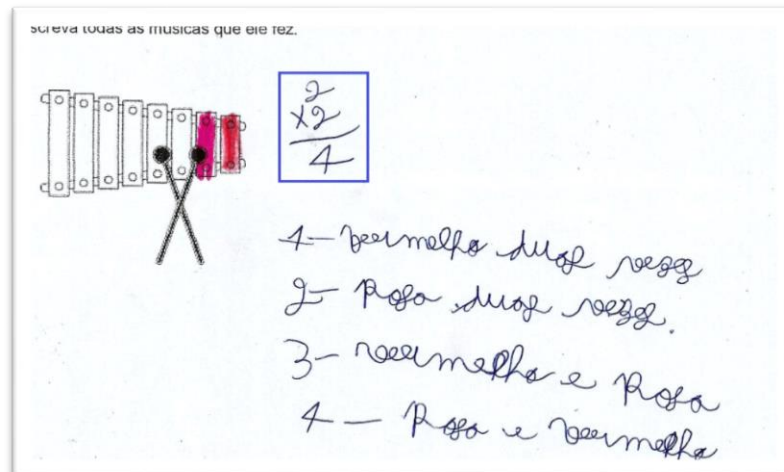 screva todas as músicas que ele fez.
2
x2
4
1- vermelho duas vezes
2- Rosa duas vezes.
3- vermelho e Rosa
4 - Rosa e vermelho